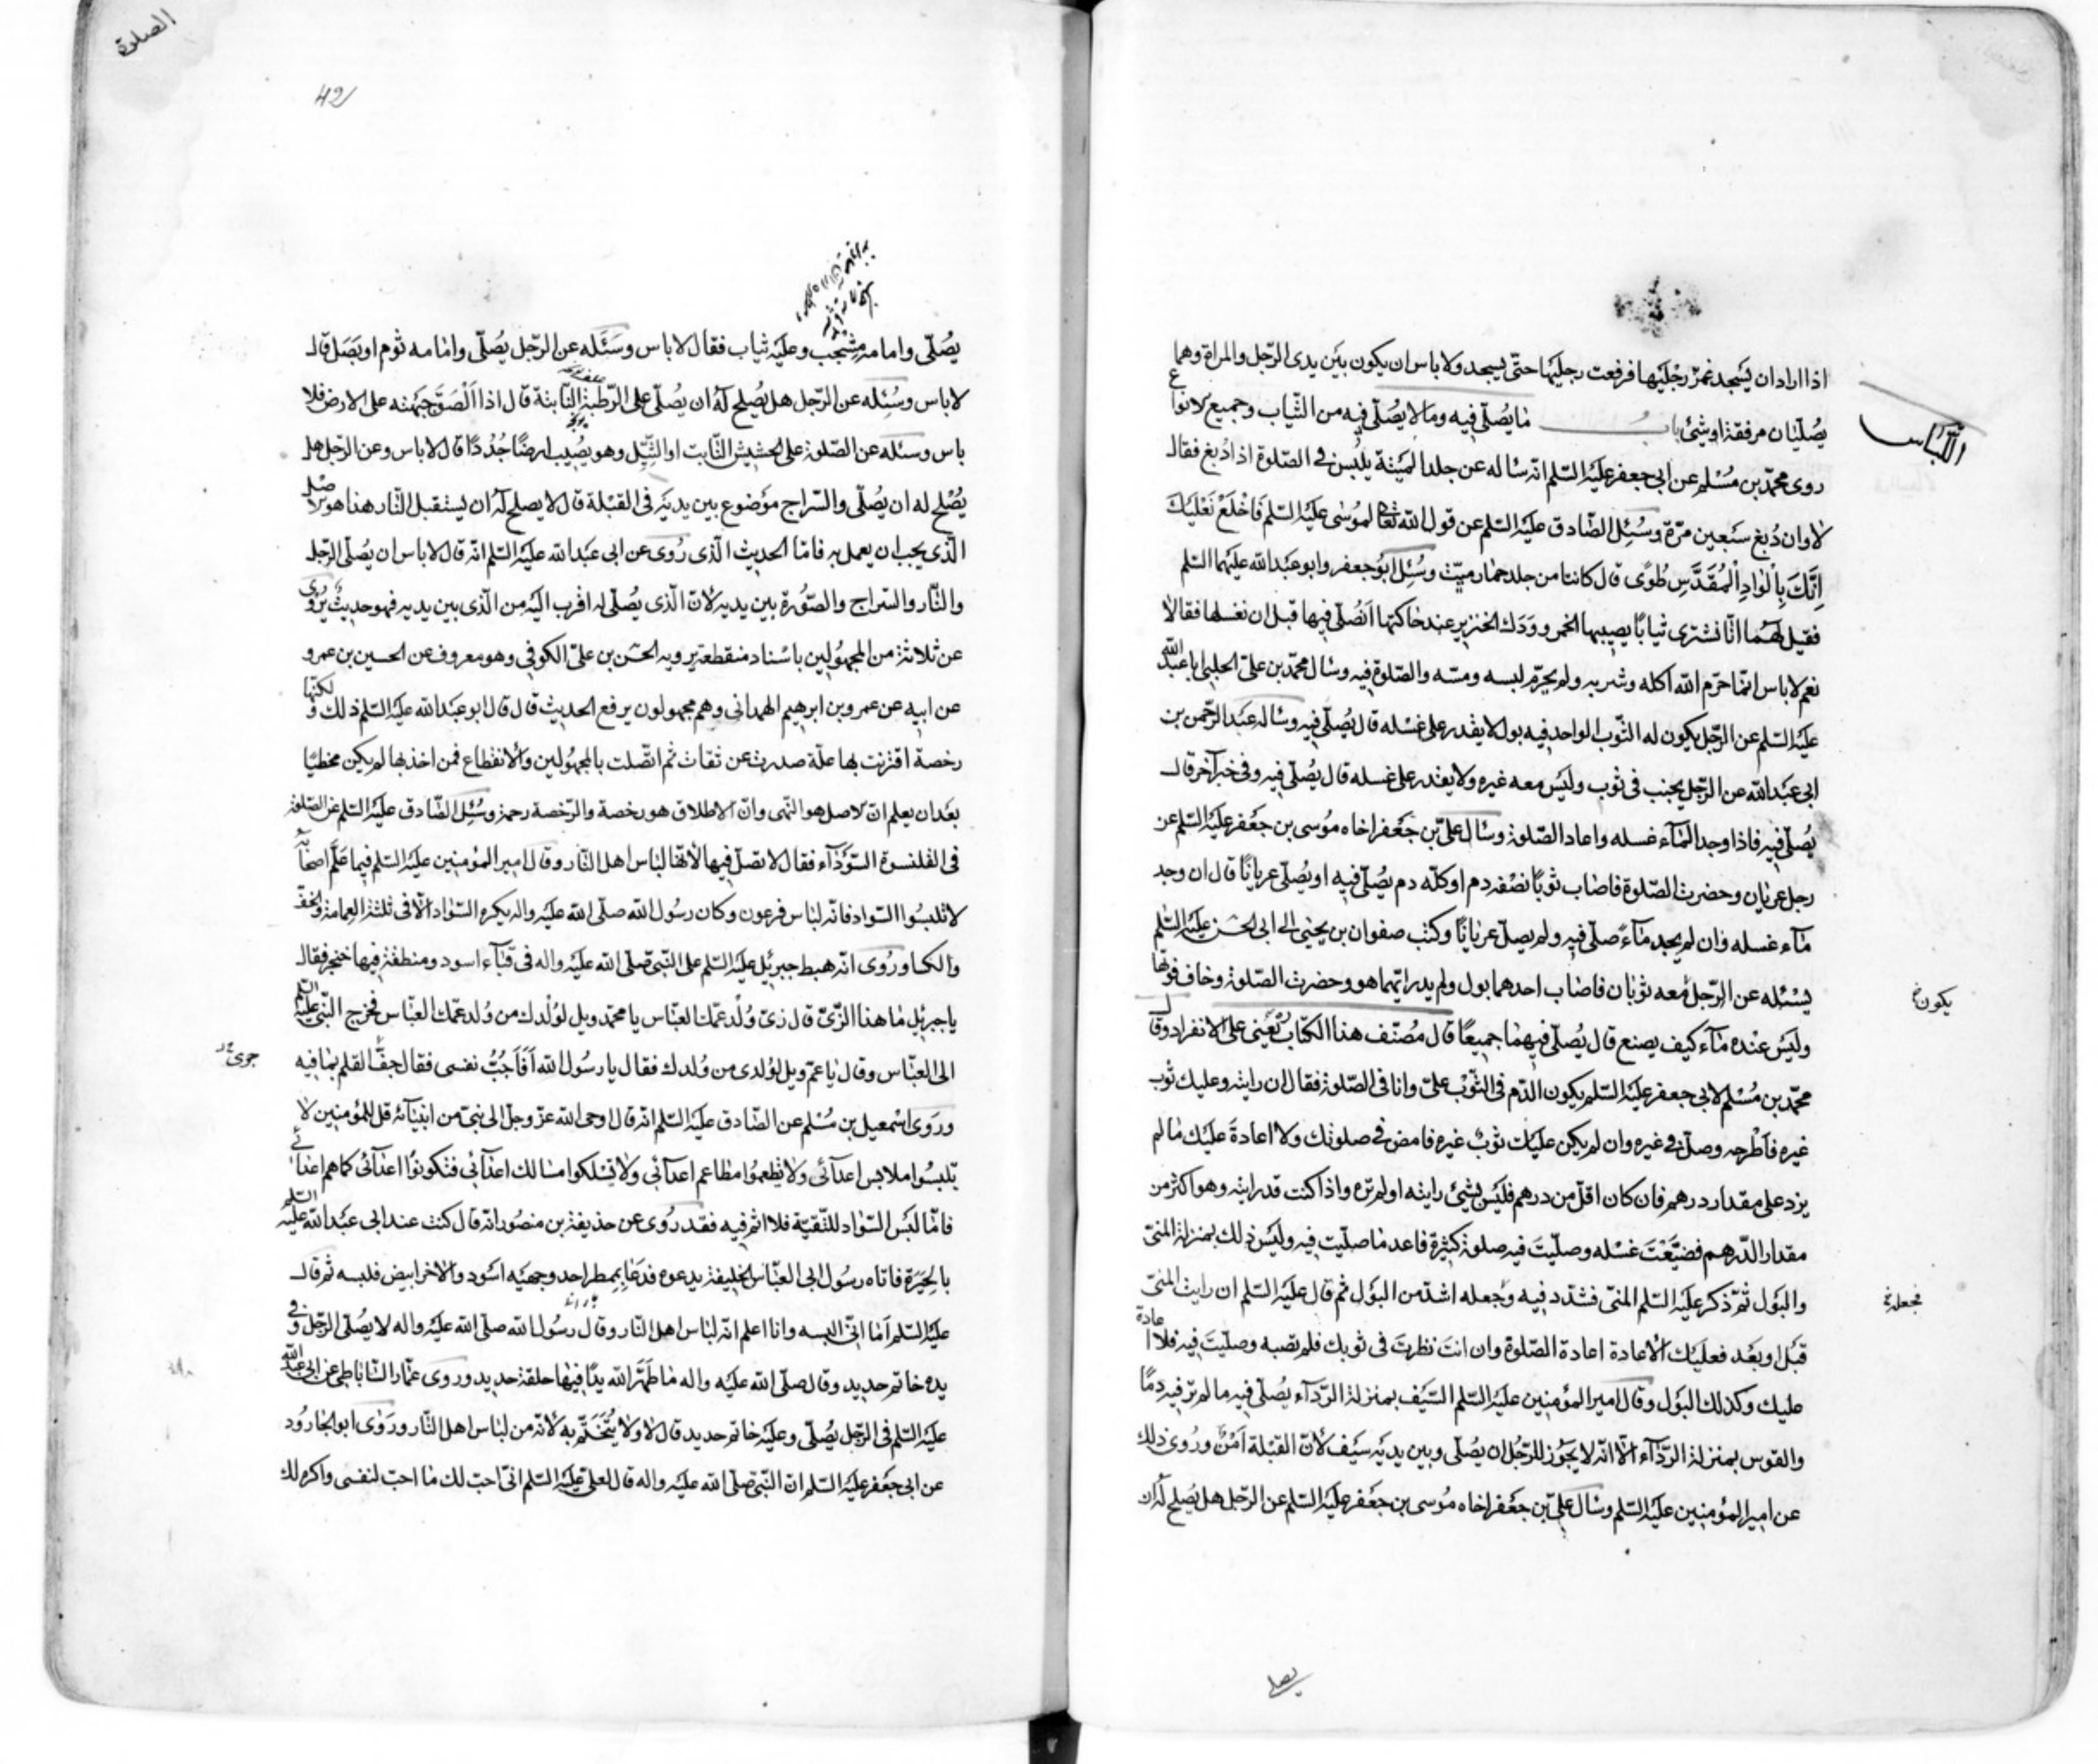 اذا اراد ان يسجد غمز رجليها فرفعت رجليها حتّى يسجد ولا باس ان يكون بين يدى الرّجل والمراة وهما
يصلّيان مرفقة او شئ باب ما يصلّى فيه وما لا يصلّى فيه من الثّياب وجميع الانواع
اللباس
روى محمّد بن مُسْلم عن ابى جعفر عليه السّلم انّه ساله عن جلد الميتة يلبس فى الصّلوة اذا دُبغ فقال
لا وان دُبغ سبعين مرّة وسُئِل الصّادق عليه السّلم عن قول الله تعالى لموُسٰى عليه السّلم فَاخْلَعْ نَعْلَيْكَ
اِنَّكَ بِالْوادِ الْمُقَدَّسِ طُوًى قال كانتا من جلد حمار ميّت وسُئِل ابوُ جعفر وابو عبد الله عليهما السّلم
فقيل لهما انّا نشترى ثيابًا يصيبها الخمر ووَدَك الخنزير عند حاكتها اَنُصَلّى فيها قبل ان نغسلها فقالا
نعم لا باس انّما حرّم الله اكله وشربه ولم يحرّم لبسه ومسّه والصّلوة فيه وسال محمّد بن علىّ الحلبى ابا عبد الله
عليه السّلم عن الرّجل يكون له الثّوب الواحد فيه بول لا يقدر على غسله قال يُصلّى فيه وساله عبد الرّحمن بن
ابى عبد الله عن الرّجل يجنب فى ثوب وليس معه غيره ولا يقدر على غسله قال يُصلّى فيه وفى خبر آخر قال
يُصلّى فيه فاذا وجد المآء غسله واعاد الصّلوة وسال علىّ بن جعفر اخاه مُوسى بن جعفر عليه السّلم عن
رجل عريان وحضرت الصّلوة فاصاب ثوبًا نصْفه دم او كلّه دم يُصلّى فيه او يُصلّى عريانًا قال ان وجد
مآء غسله وان لم يجد مآءً صلّى فيه ولم يصلّ عريانًا وكتب صفوان بن يحيى الى ابى الحسن عليه السّلم
يسئله عن الرّجل معه ثوبان فاصاب احدهما بول ولم يدر ايّهما هو وحضرت الصّلوة وخاف فوتها
يكون خ
وليس عنده مآء كيف يصنع قال يُصلّى فيهما جميعًا قال مُصنّف هذا الكتاب يَعْنى على الانفراد وقال
محمّد بن مُسْلم لابى جعفر عليه السّلم يكون الدّم فى الثّوْب علىّ وانا فى الصّلوة فقال ان رايته وعليك ثوب
غيره فاطْرحه وصلّ فى غيره وان لم يكن عليك ثوبٌ غيره فامض فى صلوتك ولا اعادة عليك ما لم
يزد على مقدار درهم فان كان اقلّ من درهم فليس بشئ رايته او لم تره واذا كنت قد رايته وهو اكثر من
مقدار الدّرهم فضيّعْتَ غسْله وصلّيتَ فيه صلوة كثيرة فاعد ما صلّيت فيه وليس ذلك بمنزلة المنىّ
والبَول ثمّ ذكر عليه السّلم المنىّ فشدّد فيه وجعله اشدّ من البوْل ثم قال عليه السّلم ان رايت المنىّ
فجعله خ
قبل او بعد فعليك الاعادة اعادة الصّلوة وان انت نظرتَ فى ثوبك فلم تصبه وصلّيتَ فيه فلا اعادة
عليك وكذلك البَول وقال امير المؤمنين عليه السّلم السّيف بمنزلة الرّدآء يُصلّى فيه ما لم تر فيه دمًا
والقوس بمنزلة الرّدآء الّا انّه لا يجوز للرّجُل ان يُصلّى وبين يديه سيْف لانّ القبْلة اَمْنٌ ورُوى ذلك
عن امير المؤمنين عليه السّلم وسال علىّ بن جعفر اخاه مُوسى بن جعفر عليه السّلم عن الرّجل هل يُصلح له ان
يصلى
الصلوة
42
يُصلّى وامامه مِشْجب وعليه ثياب فقال لا باس وسَئَله عن الرّجل يُصلّى وامامه ثوم او بَصَل قال
لا باس وسُئِله عن الرّجل هل يُصلح له ان يُصلّى على الرّطبة النّابتة قال اذا اَلْصَقَ جَبهته على الارض فلا
باس وسئله عن الصّلوة على الحشيش النّابت او الثّيّل وهو يُصيب ارضًا جُدُدًا قال لا باس وعن الرّجل هل
يُصْلح له ان يُصلّى والسّراج موْضوع بين يديه فى القبْلة قال لا يصلح له ان يستقبل النّار هذا هو الاصل
الّذى يجب ان يعمل به فامّا الحديث الّذى رُوى عن ابى عبد الله عليه السّلم انّه قال لا باس ان يُصلّى الرّجل
والنّار والسّراج والصّورة بين يديه لانّ الّذى يُصلّى له اقرب اليه من الّذى بين يديه فهو حديث يُروى
عن ثلاثة من المجهُولين باسْناد منقطعة يرويه الحسن بن علىّ الكوفى وهو معروف عن الحسين بن عمرو
عن ابيه عن عمرو بن ابرهيم الهمدانى وهم مجهولون يرفع الحديث قال قال ابو عبد الله عليه السّلم ذلك ولكنّها
رخصة اقترنت بها علّة صدرت عن ثقات ثم اتّصلت بالمجهُولين والانقطاع فمن اخذ بها لم يكن مخطيًا
بعْد ان يعلم انّ الاصل هو النّهى وانّ الاطلاق هو رخصة والرّخصة رحمة وسُئِل الصّادق عليه السّلم عن الصّلوة
فى القلنسوة السّوْدآء فقال لا تصلّ فيها لانّها لباس اهل النّار وقال امير المؤمنين عليه السّلم فيما علّم اصحابه
لا تلبسُوا السّواد فانّه لباس فرعون وكان رسُول الله صلّى الله عليه واله يكره السّواد الّا فى ثلثة العمامة والخفّ
والكسا ورُوى انّه هبط جبرئيل عليه السّلم على النّبى صلّى الله عليه واله فى قبآء اسود ومنطقة فيها خنجر فقال
يا جبرئيل ما هذا الزّىّ قال زىّ وُلْد عمّك العبّاس يا محمّد ويل لوُلْدك من وُلد عمّك العبّاس فخرج النّبى عليه السّلم
الى العبّاس وقال يا عمّ ويل لوُلدى من وُلدك فقال يا رسُول الله اَفَاَجُبُّ نفسى فقال جفّ القلم بما فيه
جرى خ
ورَوى اسْمعيل بن مُسْلم عن الصّادق عليه السّلم انّه قال اوحى الله عزّ وجلّ الى نبىّ من انبيآئه قل للمؤمنين لا
يلبسُوا ملابس اعدآئى ولا يطعموُا مطاعم اعدآئى ولا يسْلكوا مسالك اعدآئى فتكونوُا اعدآئى كما هم اعدآئى
فامّا لبْس السّواد للتّقيّة فلا اثم فيه فقد رُوى عن حذيفة بن منصُور انّه قال كنت عند ابى عبد الله عليه السّلم
بالحِيَرة فاتاه رسُول ابى العبّاس الخليفة يدعوه فدعا بمِمْطر احد وجهيْه اسْود والاخر ابيض فلبسه ثم قال
عليه السّلم اَمٰا انّى البسه وانا اعلم انّه لباس اهل النّار وقال رسُول الله صلّى الله عليه واله لا يُصلّى الرّجل وفى
يده خاتم حديد وقال صلّى الله عليه واله ما طهّر الله يدًا فيها حلقة حديد وروى عمّار السّاباطى عن ابى عبد الله
عليه السّلم فى الرّجل يُصلّى وعليه خاتم حديد قال لا ولا يُتَخَتّم به لانّه من لباس اهل النّار ورَوى ابو الجارُود
عن ابى جعفر عليه السّلم انّ النّبى صلّى الله عليه واله قال لعلىّ عليه السّلم انّى احبّ لك ما احبّ لنفسى واكره لك